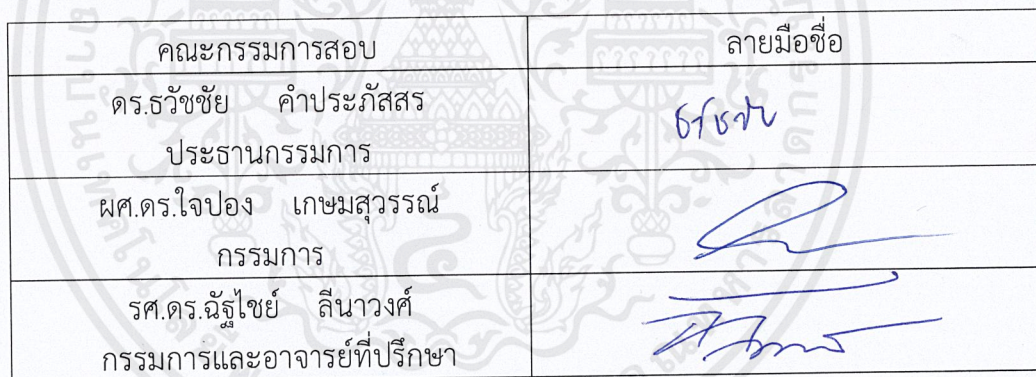 คณะกรรมการสอบ ลายมือชื่อ
ดร.ธวัชชัย คำประภัสสร
ประธานกรรมการ
ธวัชชัย
ผศ.ดร.ใจปอง เกษมสุวรรณ์
กรรมการ
รศ.ดร.ฉัฐไชย์ ลีนาวงศ์
กรรมการและอาจารย์ที่ปรึกษา